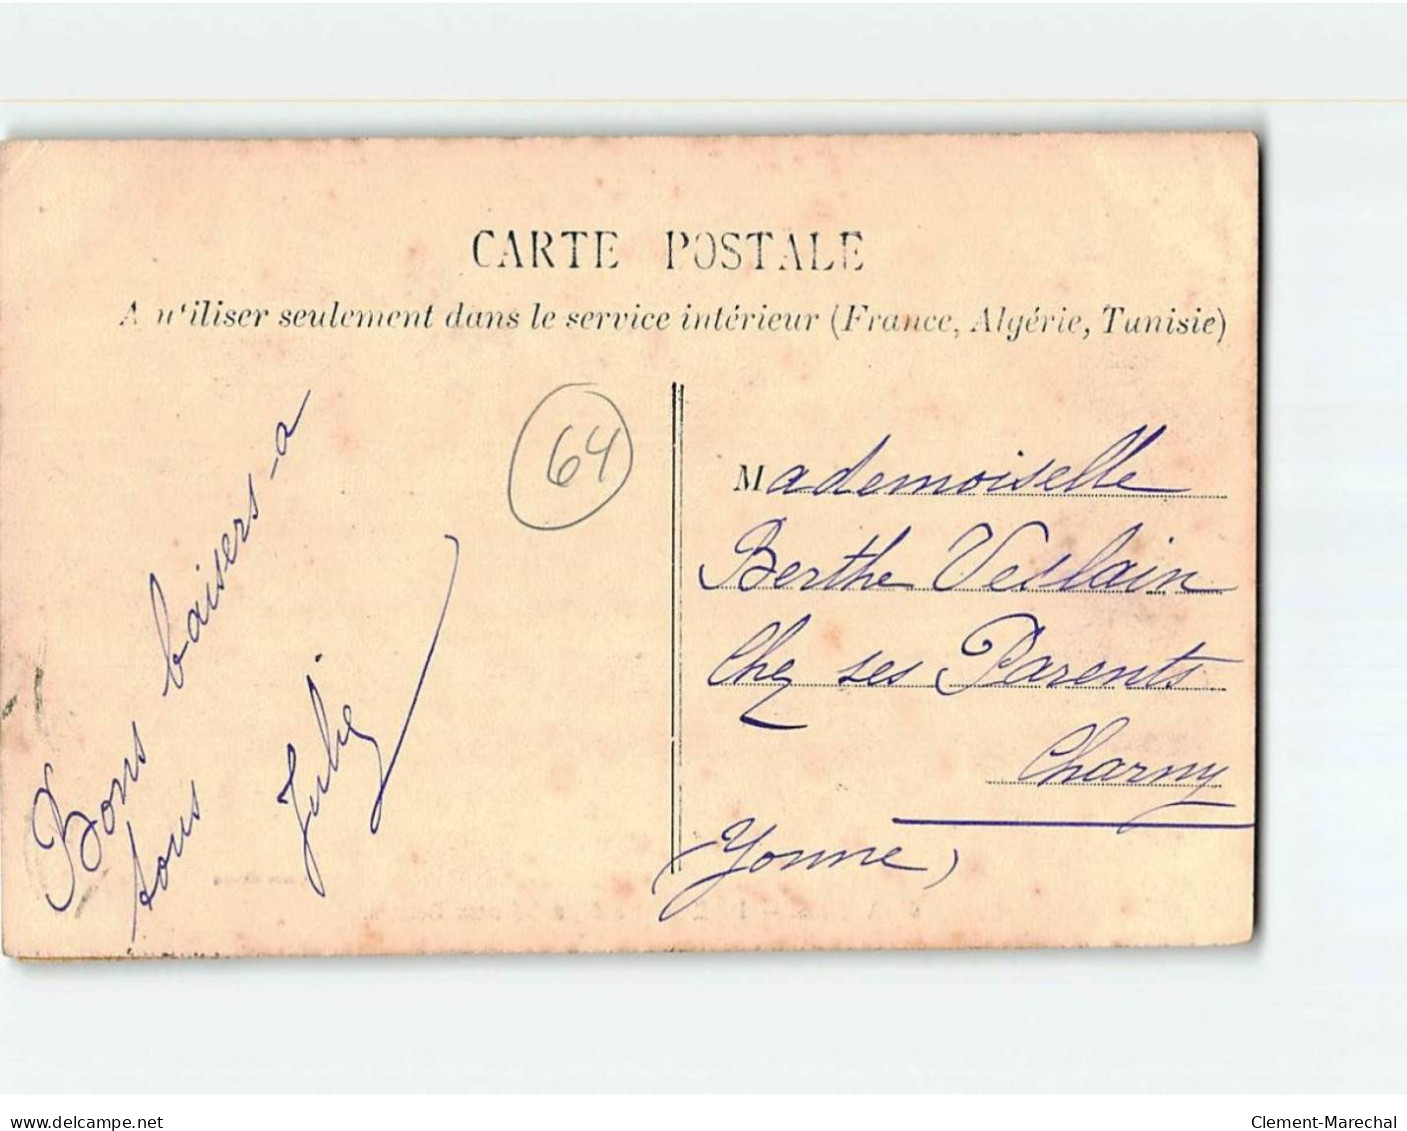 CARTE POSTALE
A utiliser seulement dans le service intérieur (France, Algérie, Tunisie)
Bons baisers a
tous
64
Mademoiselle
Berthe Veslain
Chez ses Parents
Charny
(Yonne)
www.delcampe.net
Clement-Marechal